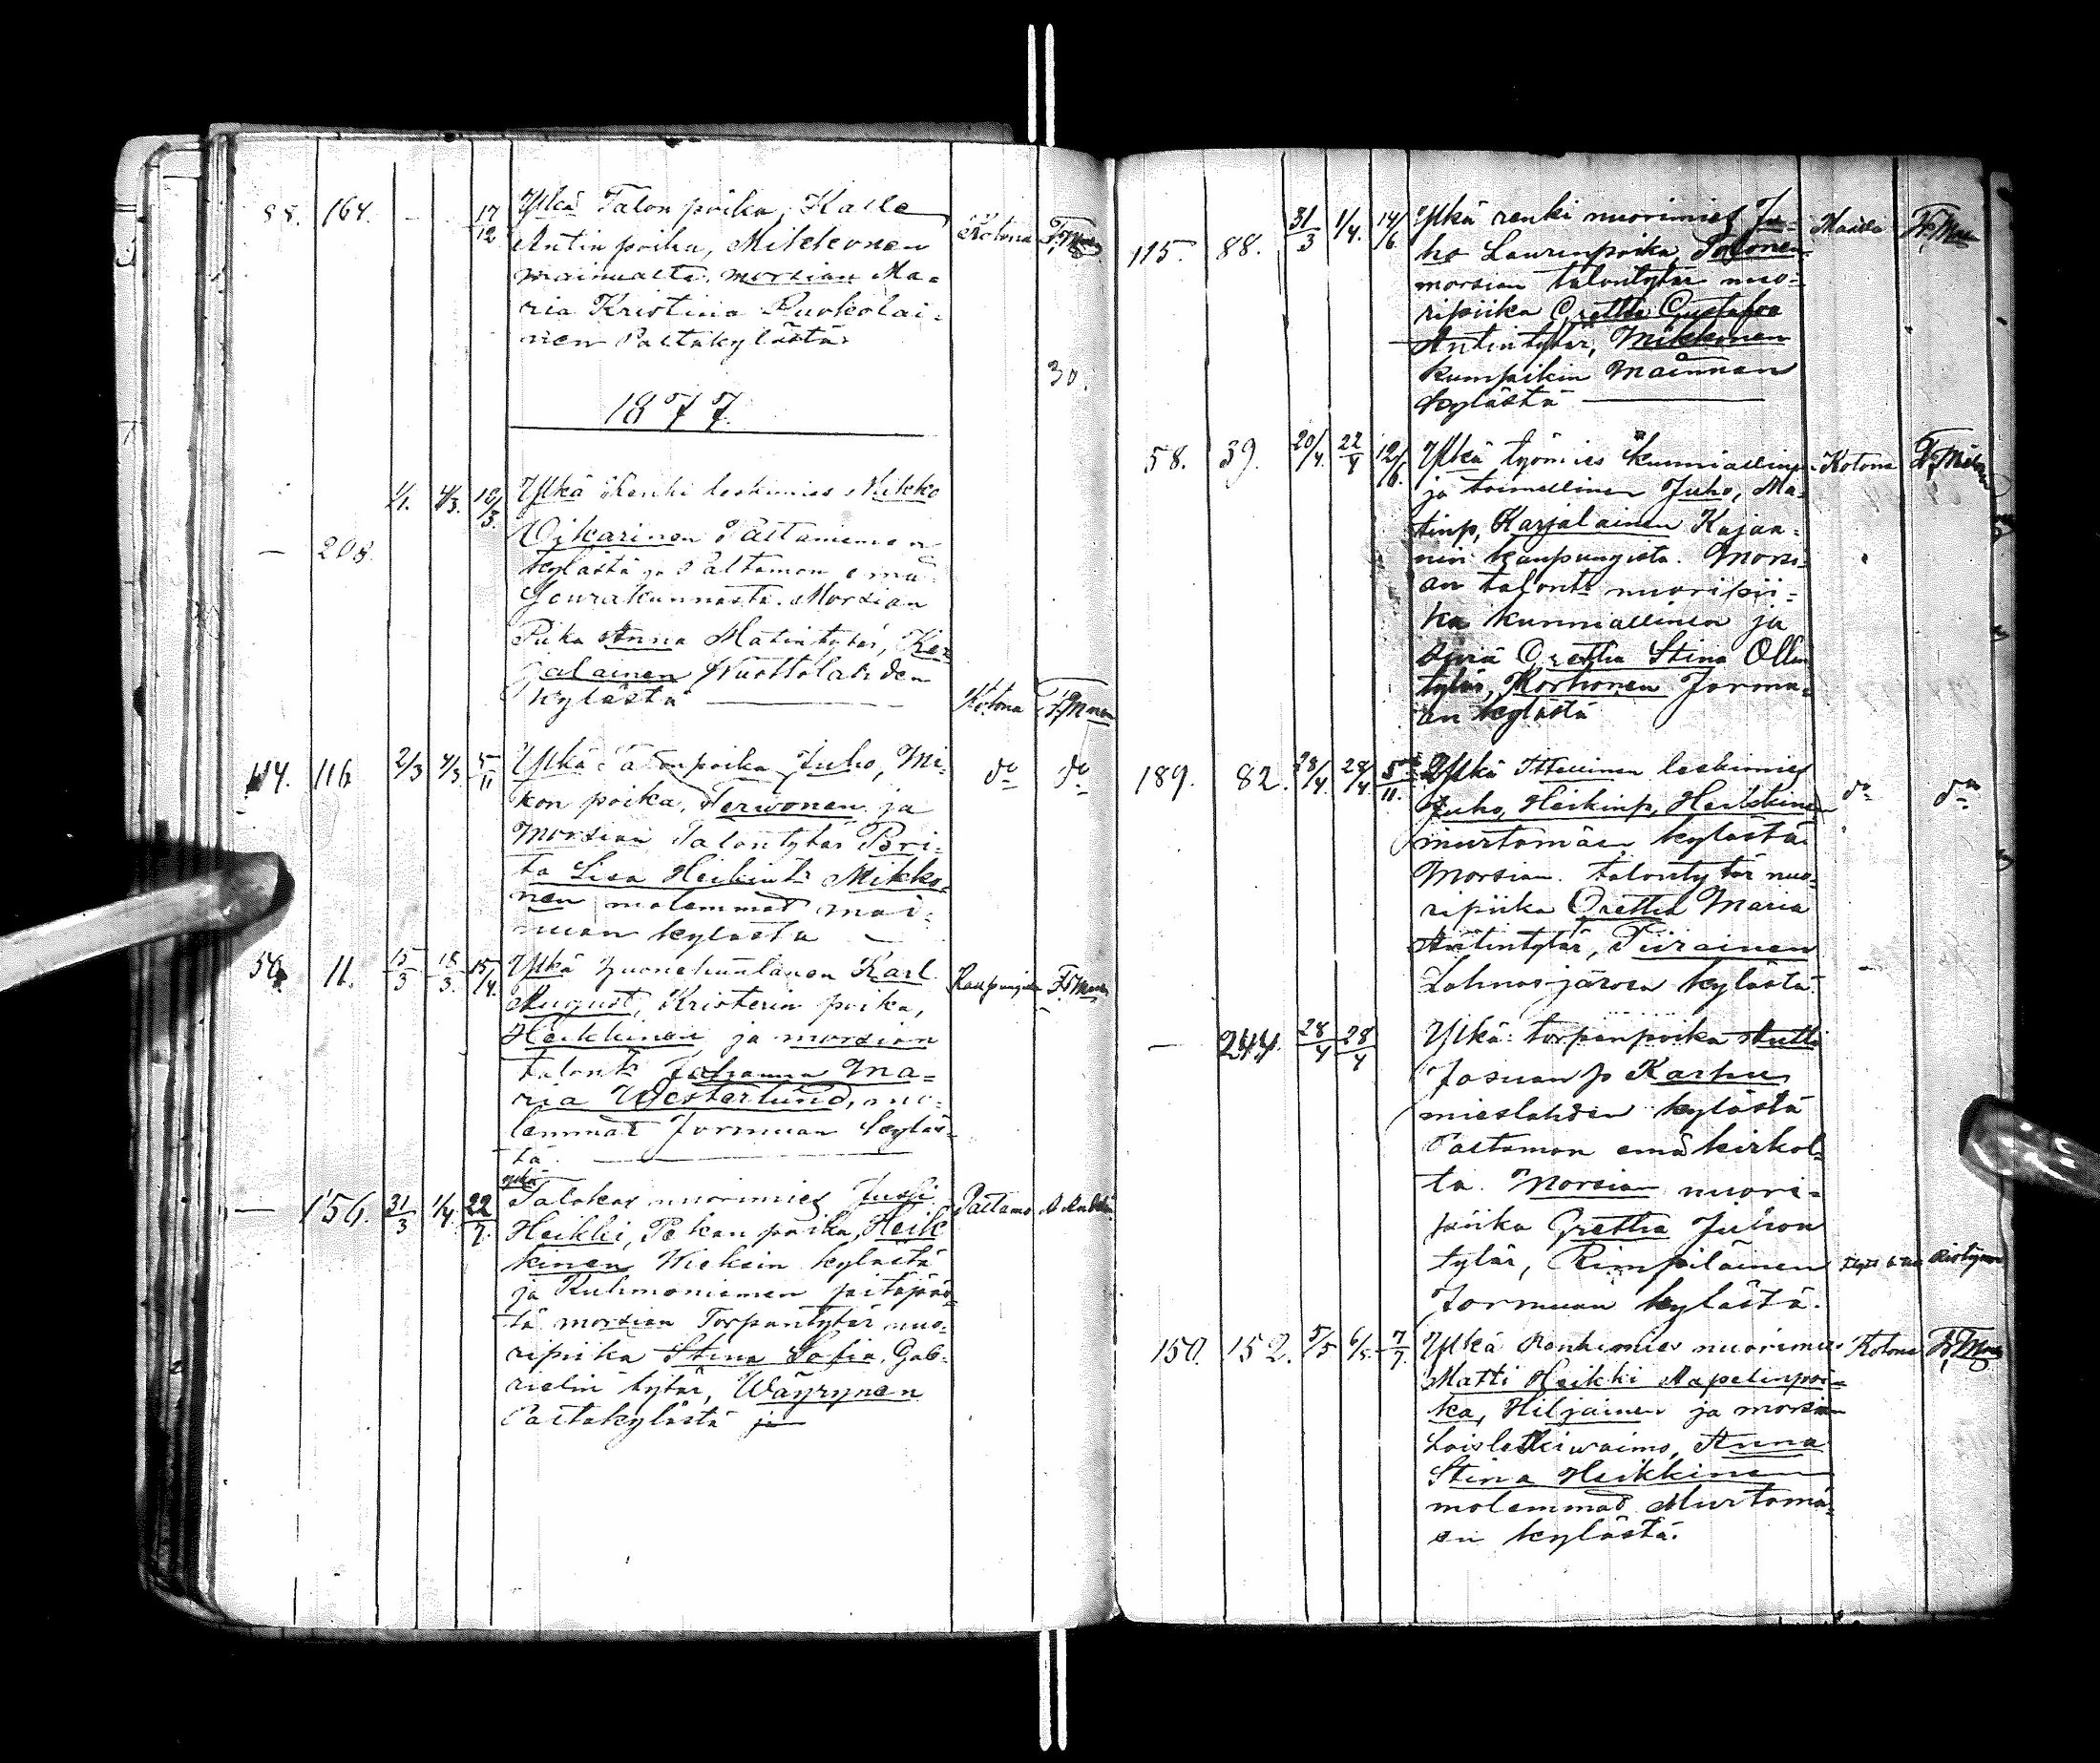 88. 164. – – 17/12 Ylkä Talon poika, Kalle Kotona
Antin poika, Mikkonen
mainualta. morsian Ma=
ria Kristiina Puokolai=
nen Paltakylästä
30.
1877.
1/1. 4/3. 18/3. Ylkä Renki leskimies Mikko
— 208. Oikarinen Paltaniemen
kylästä ja Paltamon emä
Seurakunnasta. Morsian
Piika Anna Matintytär, Kar
jalainen Wuottolahden
kylästä — Kotona
114. 116 2/3 4/3 5/11 Ylkä Talonpoika Juho, Mi=
kon poika, Terwonen ja
Morsian Talontytär Bri=
ta Lisa Heikint: Mikko=
nen molemmat mai=
nuan kylästä —
do do
56. 11. 15/3 18/3. 15/4. Ylkä huonehuulainen Karl
August, Kristerin poika,
Heikkinen ja morsian
talont: Johanna Ma=
ria Westerlund, mo=
lemmat Jormuan kyläs=
tä —
ylkä
— 156. 31/3 1/4. 22/7. Talokas nuorimies Jussi Paltamo
Heikki, Pekan poika, Heik
kinen Wieksin kylästä
ja Kuhmoniemen pitäjäs=
tä morsian Torpantytär nuo=
ripiika Stina Sofia, Gab=
rielin tytär, Wäyrynen
Paltakylästä ja
115. 88. 31/3 1/4. 14/6. Ylkä renki nuorimies Ju=
ho Laurinpoika, Tolonen
morsian talontytär nuo=
ripiika Gretha Gustafva
Antintytär, Mikkonen
kumpikin Mainuan
kylästä —
58. 39. 20/4. 22/4 12/6. Ylkä työmies kunniallinen Kotona
ja toimellinen Juho, Ma=
tinp, Karjalainen Kajaa=
nin kaupungista. Morsi=
an talont: nuoripii=
ka kunniallinen ja
siviä Gretha Stina Ollin
tytär, Korhonen Jormu=
an kylästä
189. 82. 28/4. 28/4. 5/11. Ylkä Itsellinen leskimies do do
Juho, Heikinp, Heikkinen
murtomäen kylästä
Morsian. talontytär nuo=
ripiika Gretha Maria
Antintytär, Piirainen
Lahnasjärven kylästä.
— 244. 28/4 28/4 Ylkä: torpanpoika Antti
Josuan p Karhu
mieslahden kylästä
Paltamon emäkirkol=
ta. Morsian nuori=
piika Gretha Juhon
tytär, Rimpiläinen
Jormuan kylästä.
150. 152. 5/5 6/5. 7/7. Ylkä Renkimies nuorimies Kotona
Matti Heikki Aapelinpoi=
ka, Hiljainen ja morsian
Loisleskiwaimo, Anna
Stina Heikkinen
molemmat Murtomä=
en kylästä.